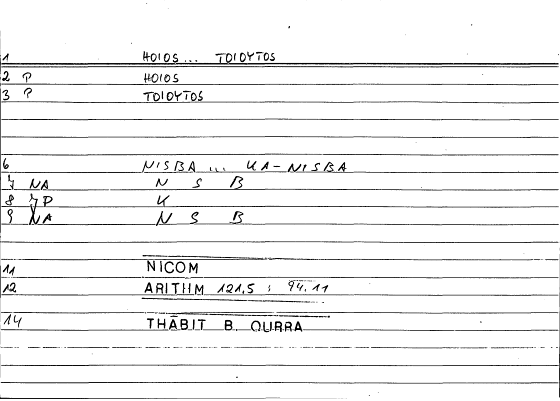 1 HOIOS ... TOIOYTOS
2 P HOIOS
3 P TOIOYTOS
6 NISBA ... KA-NISBA
7 NA N S B
8 7P K
9 NA N S B
11 NICOM
12 ARITHM 121,5 : 94.11
14 THĀBIT B. QURRA